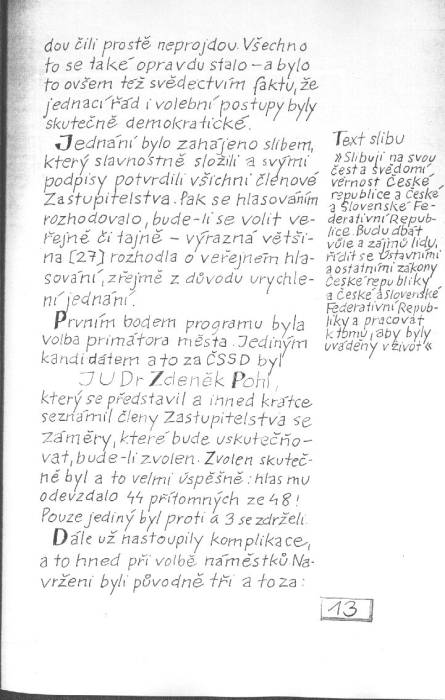 dou čili prostě neprojdou. Všechno
to se také opravdu stalo – a bylo
to ovšem též svědectvím faktu, že
jednací řád i volební postupy byly
skutečně demokratické.
Jednání bylo zahájeno slibem,
který slavnostně složili a svými
podpisy potvrdili všichni členové
Zastupitelstva. Pak se hlasováním
rozhodovalo, bude-li se volit ve-
řejně či tajně – výrazná většి-
na [27] rozhodla o veřejném hla-
sování, zřejmě z důvodu urychle-
ní jednání.
Prvním bodem programu byla
volba primátora města. Jediným
kandidátem a to za ČSSD byl
JUDr Zdeněk Pohl,
který se představil a ihned krátce
seznámil členy Zastupitelstva se
záměry, které bude uskutečňo-
vat, bude-li zvolen. Zvolen skuteč-
ně byl a to velmi úspěšně: hlas mu
odevzdalo 44 přítomných ze 48!
Pouze jediný byl proti a 3 se zdrželi.
Dále už nastoupily komplikace,
a to hned při volbě náměstků. Na-
vrženi byli původně tři a to za:
Text slibu
»Slibuji na svou
čest a svědomí
věrnost České
republice a České
a Slovenské Fe-
derativní Repub-
lice. Budu dbát
vůle a zájmů lidu,
řídit se Ústavními
a ostatními zákony
České republiky
a České a Slovenské
Federativní Repub-
liky a pracovat
k tomu, aby byly
uváděny v život«
13